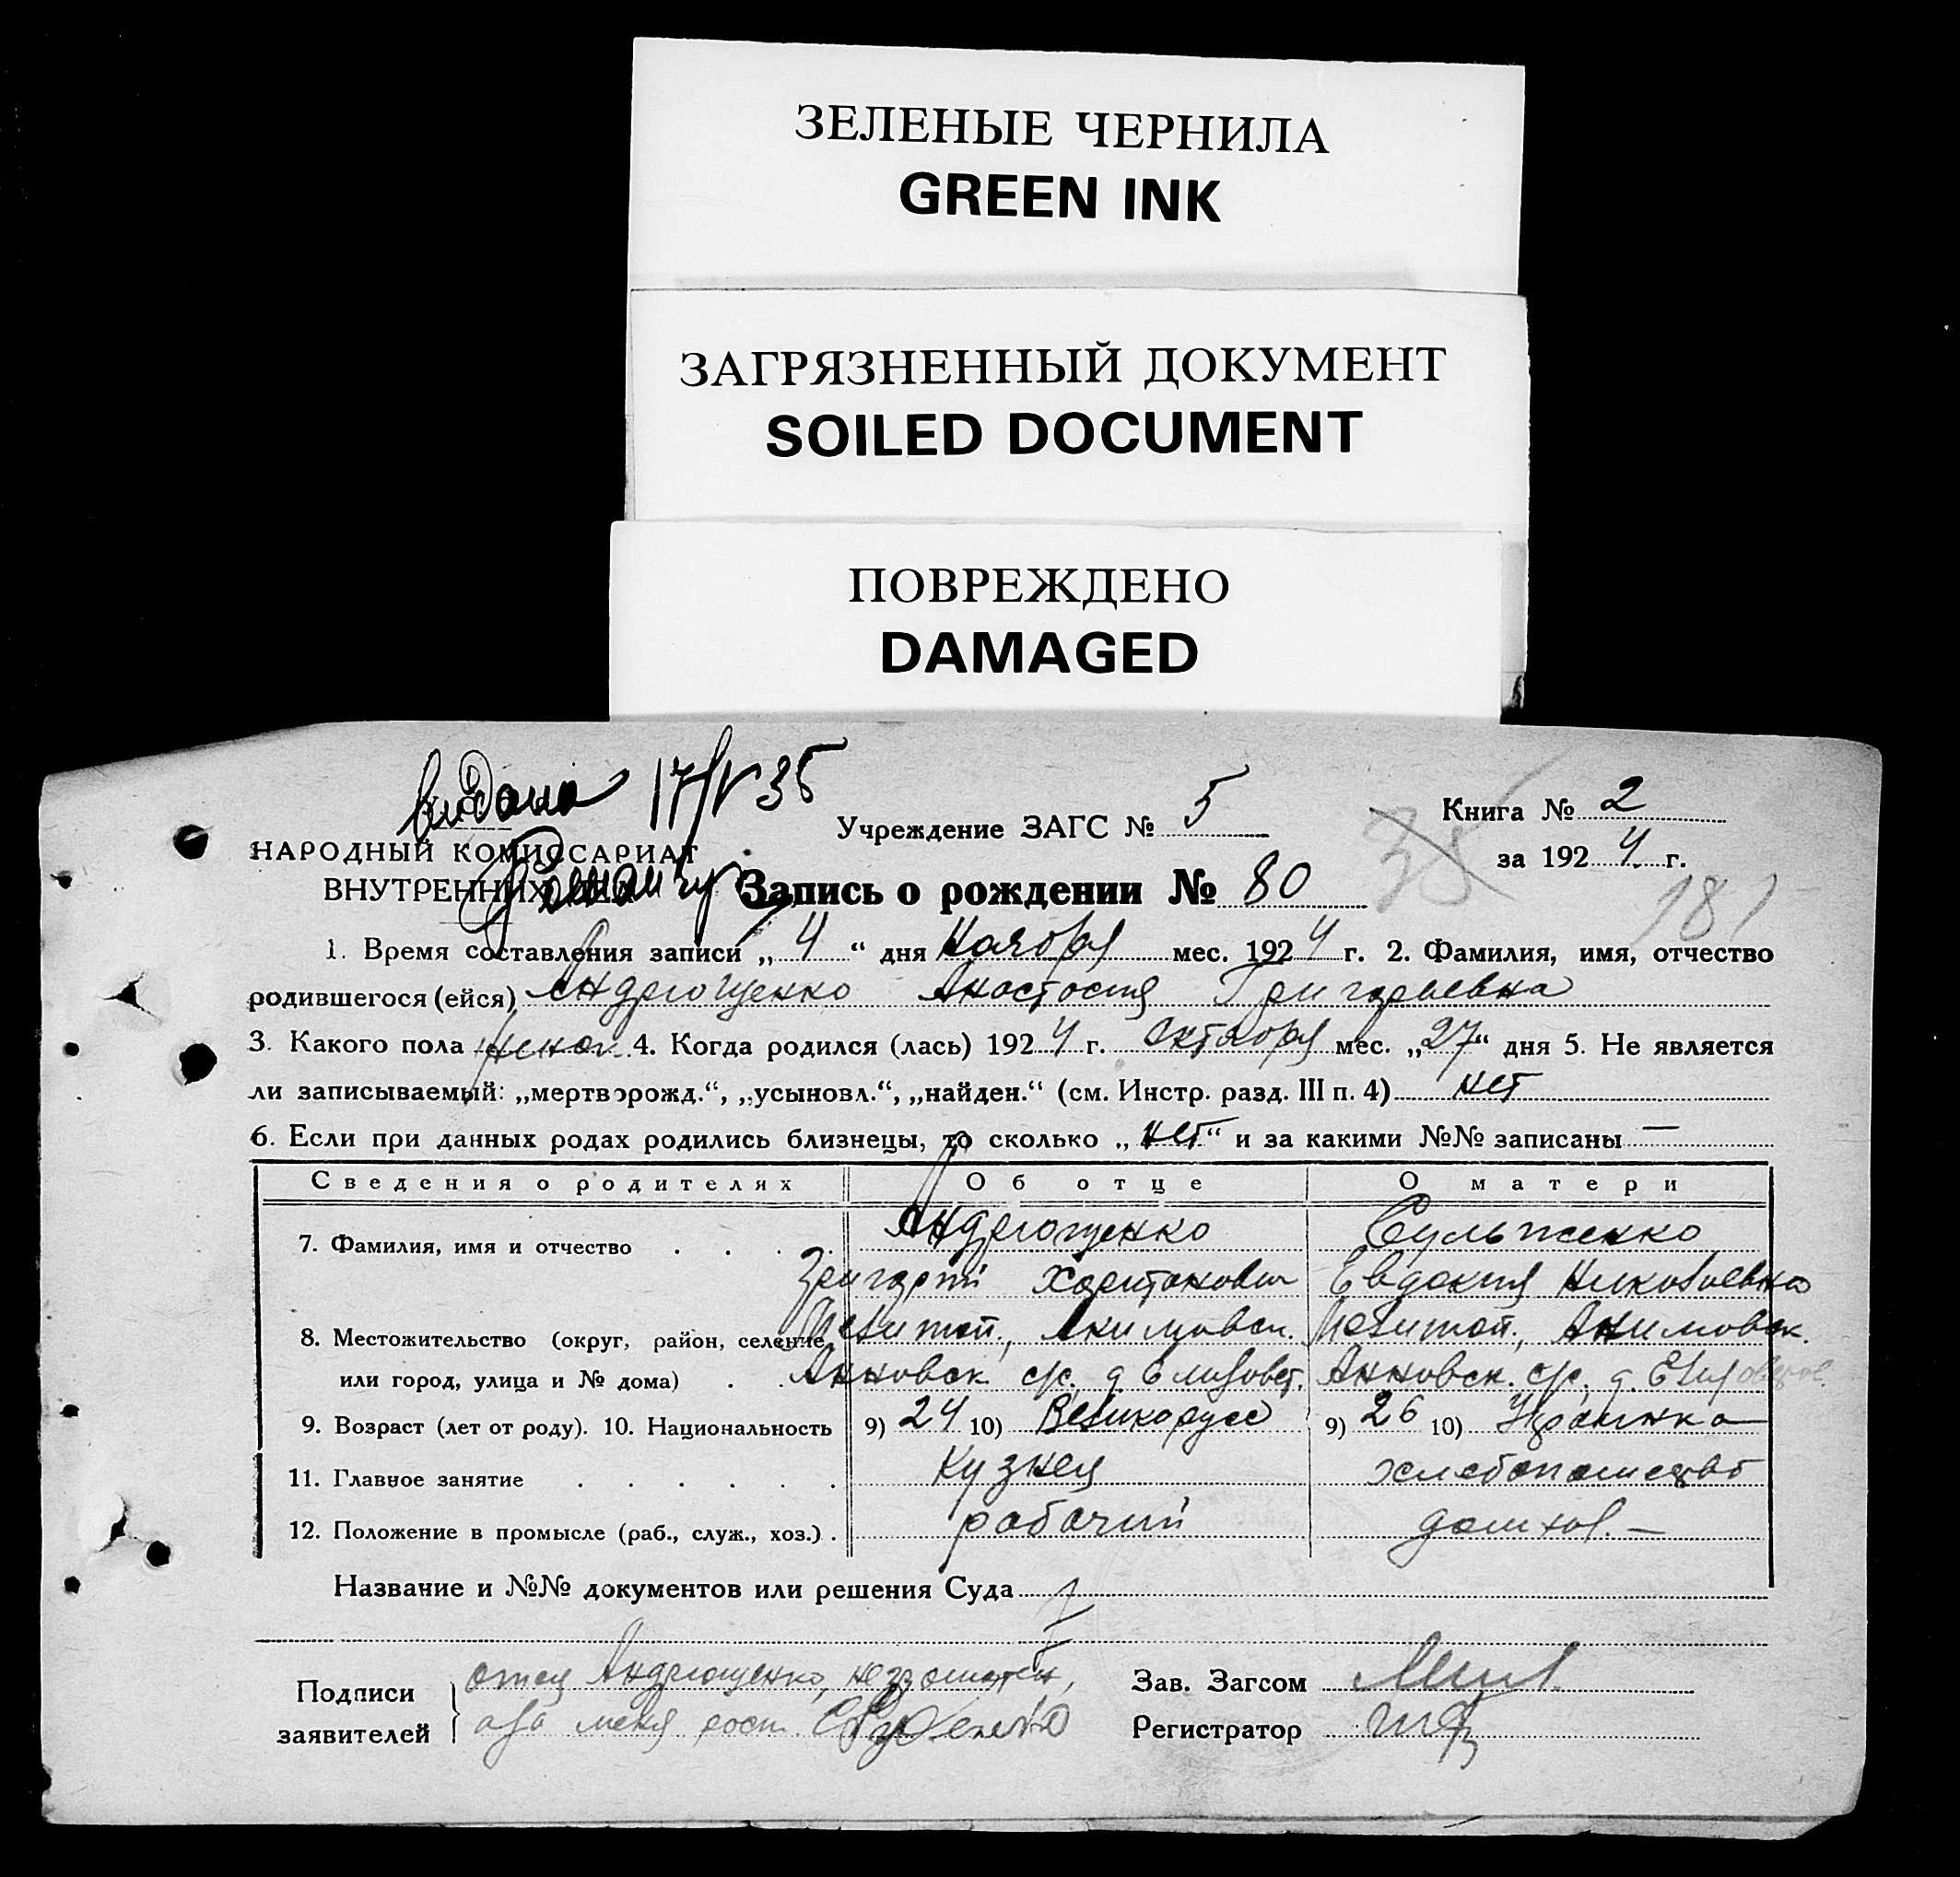 ЗЕЛЕНЫЕ ЧЕРНИЛА
GREEN INK
ЗАГРЯЗНЕННЫЙ ДОКУМЕНТ
SOILED DOCUMENT
ПОВРЕЖДЕНО
DAMAGED
видана 17/V 35
Учреждение ЗАГС № 5
Книга № 2
за 1924 г.
35
НАРОДНЫЙ КОМИССАРИАТ
ВНУТРЕННИХ ДЕЛ
Запись о рождении № 80
181
1. Время составления записи „4“ дня Ноября мес. 1924 г. 2. Фамилия, имя, отчество
родившегося (ейся) Андрющенко Анастасия Григорьевна
3. Какого пола женск. 4. Когда родился (лась) 1924 г. Октября мес. „27“ дня 5. Не является
ли записываемый: „мертворожд.“, „усыновл.“, „найден.“ (см. Инстр. разд. III п. 4) нет
6. Если при данных родах родились близнецы, то сколько „нет“ и за какими №№ записаны —
Сведения о родителях Об отце О матери
7. Фамилия, имя и отчество Андрющенко Сульженко
Григорий Харитонович Евдокия Николаевна
8. Местожительство (округ, район, селение Мелитоп., Акимовск. Мелитоп., Акимовск.
или город, улица и № дома) Анновск. с/с. д. Елизовет. Анновск. с/с. д.
9. Возраст (лет от роду). 10. Национальность 9) 24 10) Великорусс 9) 26 10) Украинка
11. Главное занятие Кузнец хлебопашество
12. Положение в промысле (раб., служ., хоз.) рабочий дом хоз. —
Название и №№ документов или решения Суда
Подписи
заявителей
отец Андрющенко, неграмотен,
за меня росп.
Зав. Загсом
Регистратор